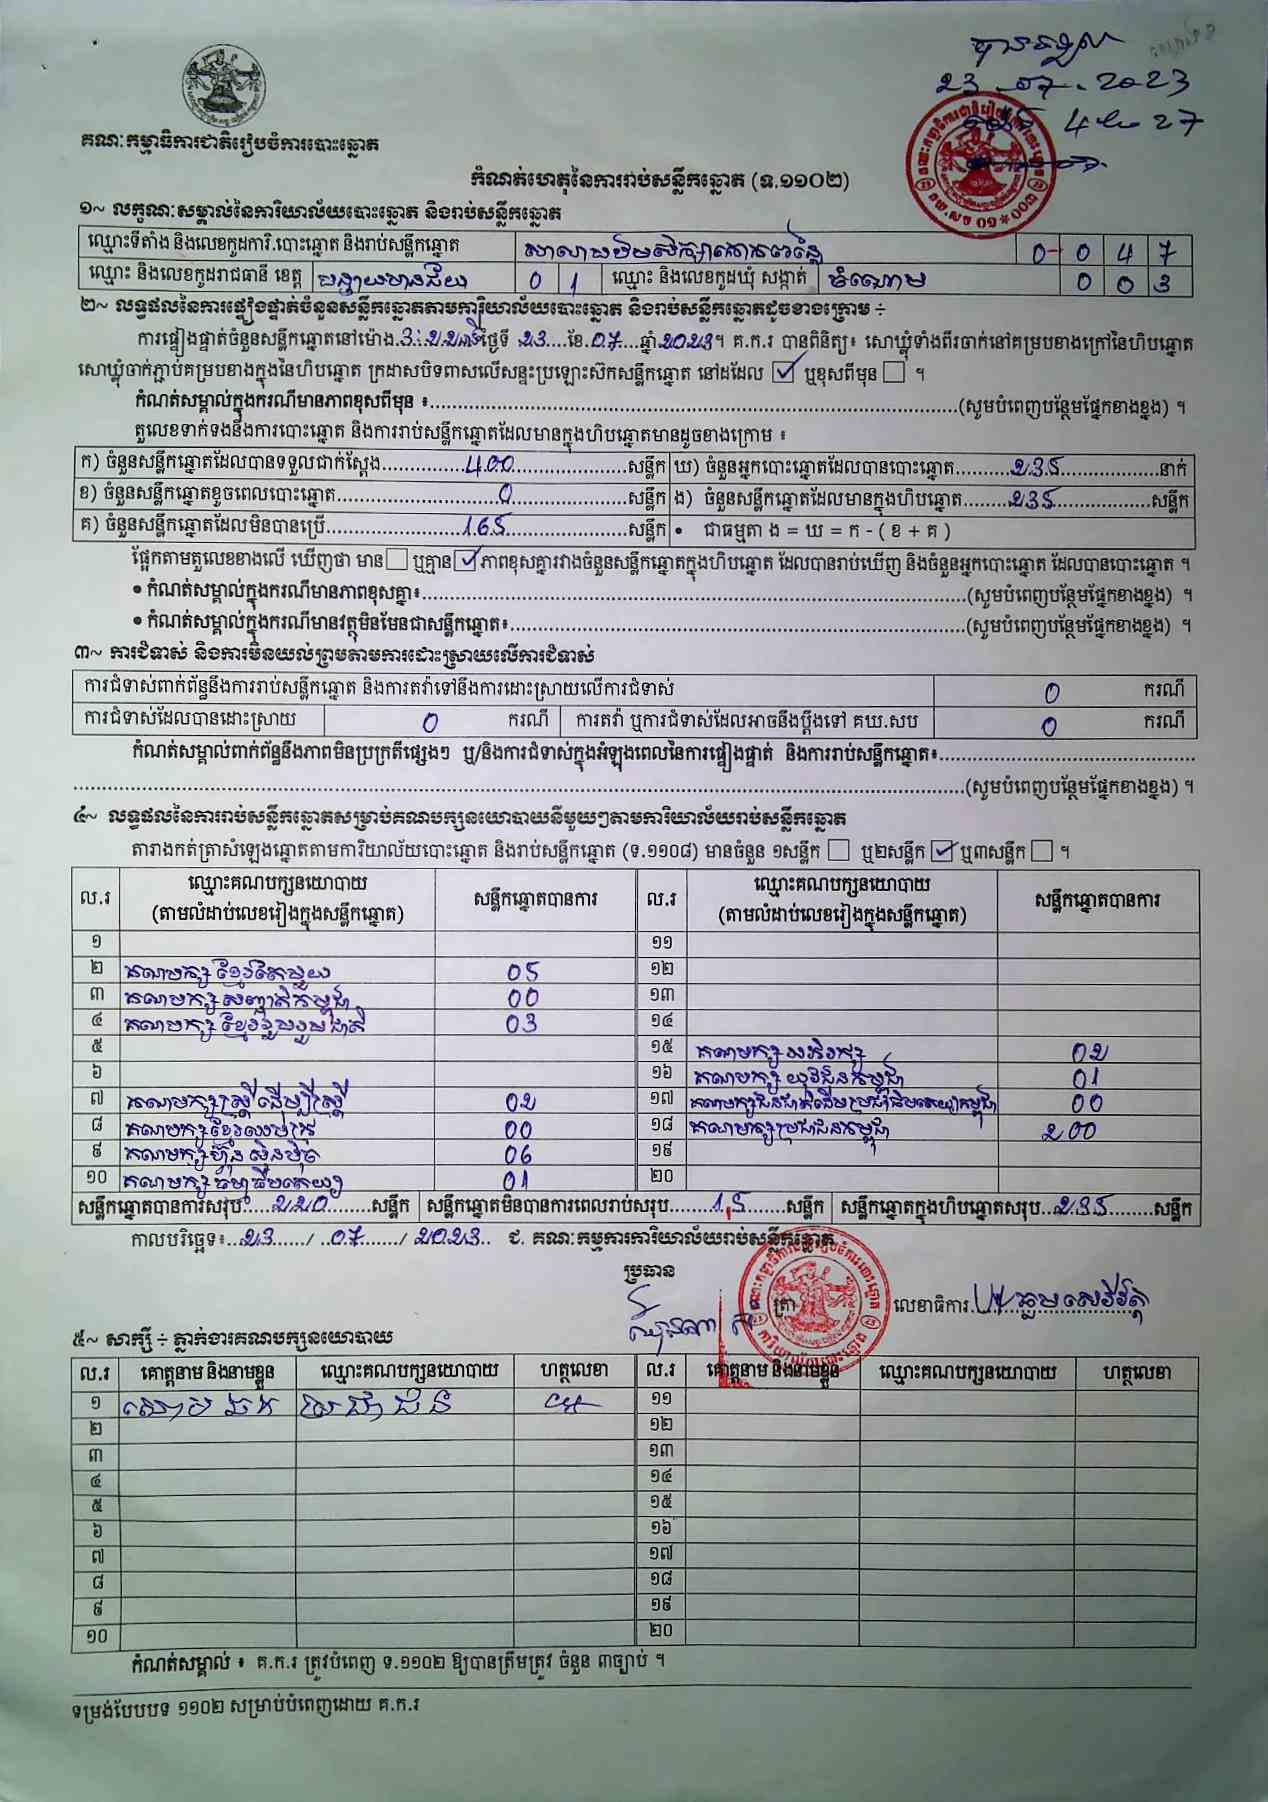 23-07-2023
4 27
គណៈកម្មាធិការជាតិរៀបចំការបោះឆ្នោត
កំណត់ហេតុនៃការរាប់សន្លឹកឆ្នោត (ទ.១១០២)
១~ លក្ខណៈសម្គាល់នៃការិយាល័យបោះឆ្នោត និងរាប់សន្លឹកឆ្នោត
ឈ្មោះទីតាំង និងលេខកូដការិ.បោះឆ្នោត និងរាប់សន្លឹកឆ្នោត 0 0 4 7
ឈ្មោះ និងលេខកូដរាជធានី ខេត្ត បន្ទាយមានជ័យ 0 1 ឈ្មោះ និងលេខកូដឃុំ សង្កាត់ ចំណោម 0 0 3
២~ លទ្ធផលនៃការផ្ទៀងផ្ទាត់ចំនួនសន្លឹកឆ្នោតតាមការិយាល័យបោះឆ្នោត និងរាប់សន្លឹកឆ្នោតដូចខាងក្រោម ÷
ការផ្ទៀងផ្ទាត់ចំនួនសន្លឹកឆ្នោតនៅម៉ោង.3:22នាទីថ្ងៃទី 23....ខែ.07....ឆ្នាំ.2023។ គ.ក.រ បានពិនិត្យ៖ សោឃ្លុំទាំងពីរចាក់នៅគម្របខាងក្រៅនៃហិបឆ្នោត
សោឃ្លុំចាក់ភ្ជាប់គម្របខាងក្នុងនៃហិបឆ្នោត ក្រដាសបិទពាសលើសន្ទះប្រឡោះស៊កសន្លឹកឆ្នោត នៅដដែល ☑ ឬខុសពីមុន ☐ ។
កំណត់សម្គាល់ក្នុងករណីមានភាពខុសពីមុន ៖..........(សូមបំពេញបន្ថែមផ្នែកខាងខ្នង) ។
តួលេខទាក់ទងនឹងការបោះឆ្នោត និងការរាប់សន្លឹកឆ្នោតដែលមានក្នុងហិបឆ្នោតមានដូចខាងក្រោម ៖
ក) ចំនួនសន្លឹកឆ្នោតដែលបានទទួលជាក់ស្តែង..........400..........សន្លឹក ឃ) ចំនួនអ្នកបោះឆ្នោតដែលបានបោះឆ្នោត..........235..........នាក់
ខ) ចំនួនសន្លឹកឆ្នោតខូចពេលបោះឆ្នោត..........0..........សន្លឹក ង) ចំនួនសន្លឹកឆ្នោតដែលមានក្នុងហិបឆ្នោត..........235..........សន្លឹក
គ) ចំនួនសន្លឹកឆ្នោតដែលមិនបានប្រើ..........165..........សន្លឹក • ជាធម្មតា ង = ឃ = ក - ( ខ + គ )
ផ្អែកតាមតួលេខខាងលើ ឃើញថា មាន ☐ ឬគ្មាន ☑ ភាពខុសគ្នារវាងចំនួនសន្លឹកឆ្នោតក្នុងហិបឆ្នោត ដែលបានរាប់ឃើញ និងចំនួនអ្នកបោះឆ្នោត ដែលបានបោះឆ្នោត ។
• កំណត់សម្គាល់ក្នុងករណីមានភាពខុសគ្នា៖..........(សូមបំពេញបន្ថែមផ្នែកខាងខ្នង) ។
• កំណត់សម្គាល់ក្នុងករណីមានវត្ថុមិនមែនជាសន្លឹកឆ្នោត៖..........(សូមបំពេញបន្ថែមផ្នែកខាងខ្នង) ។
៣~ ការជំទាស់ និងការមិនយល់ព្រមតាមការដោះស្រាយលើការជំទាស់
ការជំទាស់ពាក់ព័ន្ធនឹងការរាប់សន្លឹកឆ្នោត និងការតវ៉ាទៅនឹងការដោះស្រាយលើការជំទាស់ 0 ករណី
ការជំទាស់ដែលបានដោះស្រាយ 0 ករណី ការតវ៉ា ឬការជំទាស់ដែលអាចនឹងប្តឹងទៅ គឃ.សប 0 ករណី
កំណត់សម្គាល់ពាក់ព័ន្ធនឹងភាពមិនប្រក្រតីផ្សេងៗ ឬ/និងការជំទាស់ក្នុងអំឡុងពេលនៃការផ្ទៀងផ្ទាត់ និងការរាប់សន្លឹកឆ្នោត៖..........
..........(សូមបំពេញបន្ថែមផ្នែកខាងខ្នង) ។
៤~ លទ្ធផលនៃការរាប់សន្លឹកឆ្នោតសម្រាប់គណបក្សនយោបាយនីមួយៗតាមការិយាល័យរាប់សន្លឹកឆ្នោត
តារាងកត់ត្រាសំឡេងឆ្នោតតាមការិយាល័យបោះឆ្នោត និងរាប់សន្លឹកឆ្នោត (ទ.១១០៨) មានចំនួន ១សន្លឹក ☐ ឬ២សន្លឹក ☑ ឬ៣សន្លឹក ☐ ។
ល.រ ឈ្មោះគណបក្សនយោបាយ (តាមលំដាប់លេខរៀងក្នុងសន្លឹកឆ្នោត) សន្លឹកឆ្នោតបានការ ល.រ ឈ្មោះគណបក្សនយោបាយ (តាមលំដាប់លេខរៀងក្នុងសន្លឹកឆ្នោត) សន្លឹកឆ្នោតបានការ
១ ១១
២ គណបក្សខ្មែរតែមួយ 05 ១២
៣ គណបក្សសញ្ជាតិកម្ពុជា 00 ១៣
៤ គណបក្សខ្មែររួបរួមជាតិ 03 ១៤
៥ ១៥ គណបក្ស 02
៦ ១៦ គណបក្ស យុវជនកម្ពុជា 01
៧ គណបក្សស្ត្រីដើម្បីស្ត្រី 02 ១៧ គណបក្សជនជាតិដើមប្រជាធិបតេយ្យកម្ពុជា 00
៨ គណបក្សខ្មែរឈប់ក្រ 00 ១៨ គណបក្សប្រជាជនកម្ពុជា 200
៩ គណបក្សហ៊្វុនស៊ិនប៉ិច 06 ១៩
១០ គណបក្សធម្មាធិបតេយ្យ 01 ២០
សន្លឹកឆ្នោតបានការសរុប.....220........សន្លឹក សន្លឹកឆ្នោតមិនបានការពេលរាប់សរុប.......15.......សន្លឹក សន្លឹកឆ្នោតក្នុងហិបឆ្នោតសរុប..235........សន្លឹក
កាលបរិច្ឆេទ៖..23...../ ..07....../ 2023.. ជ. គណៈកម្មការការិយាល័យរាប់សន្លឹកឆ្នោត
ប្រធាន
ត្រា លេខាធិការ
៥~ សាក្សី ÷ ភ្នាក់ងារគណបក្សនយោបាយ
ល.រ គោត្តនាម និងនាមខ្លួន ឈ្មោះគណបក្សនយោបាយ ហត្ថលេខា ល.រ គោត្តនាម និងនាមខ្លួន ឈ្មោះគណបក្សនយោបាយ ហត្ថលេខា
១ ប្រជាជន ១១
២ ១២
៣ ១៣
៤ ១៤
៥ ១៥
៦ ១៦
៧ ១៧
៨ ១៨
៩ ១៩
១០ ២០
កំណត់សម្គាល់ ៖ គ.ក.រ ត្រូវបំពេញ ទ.១១០២ ឱ្យបានត្រឹមត្រូវ ចំនួន ៣ច្បាប់ ។
ទម្រង់បែបបទ ១១០២ សម្រាប់បំពេញដោយ គ.ក.រ